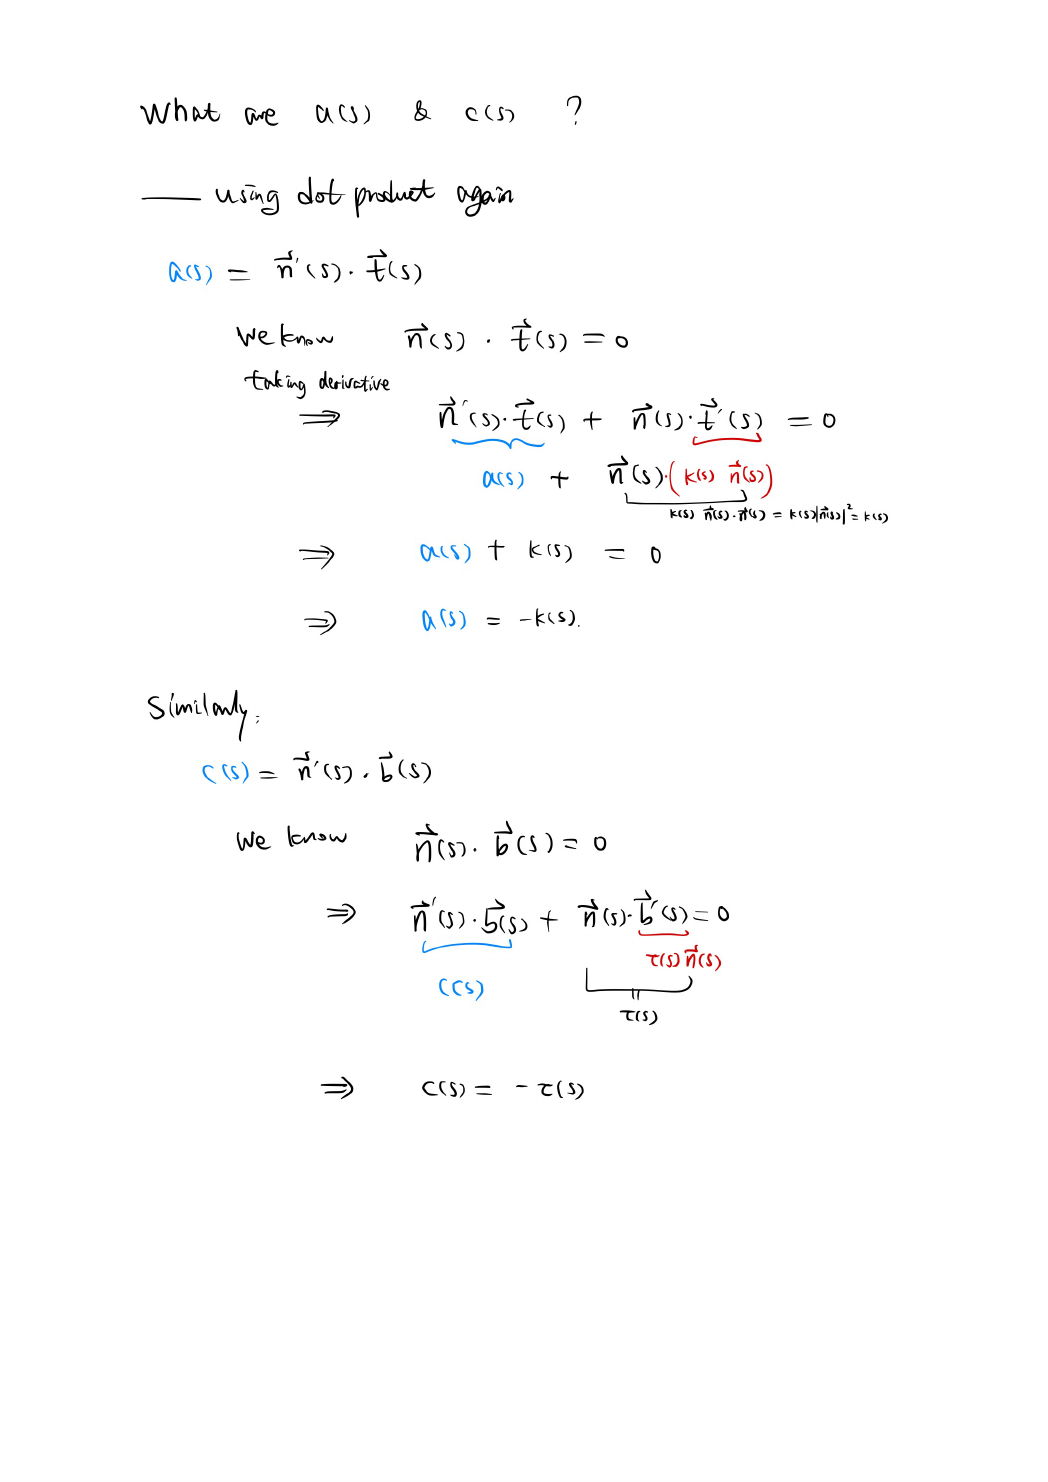 What are a(s) & c(s) ?
—— using dot product again
a(s) = n⃗'(s) · t⃗(s)
We know n⃗(s) · t⃗(s) = 0
taking derivative
⇒ n⃗'(s) · t⃗(s) + n⃗(s) · t⃗'(s) = 0
a(s) + n⃗(s) · (k(s) n⃗(s))
k(s) n⃗(s) · n⃗(s) = k(s)|n⃗(s)|² = k(s)
⇒ a(s) + k(s) = 0
⇒ a(s) = -k(s).
Similarly,
c(s) = n⃗'(s) · b⃗(s)
We know n⃗(s) · b⃗(s) = 0
⇒ n⃗'(s) · b⃗(s) + n⃗(s) · b⃗'(s) = 0
τ(s) n⃗(s)
c(s)
τ(s)
⇒ c(s) = - τ(s)